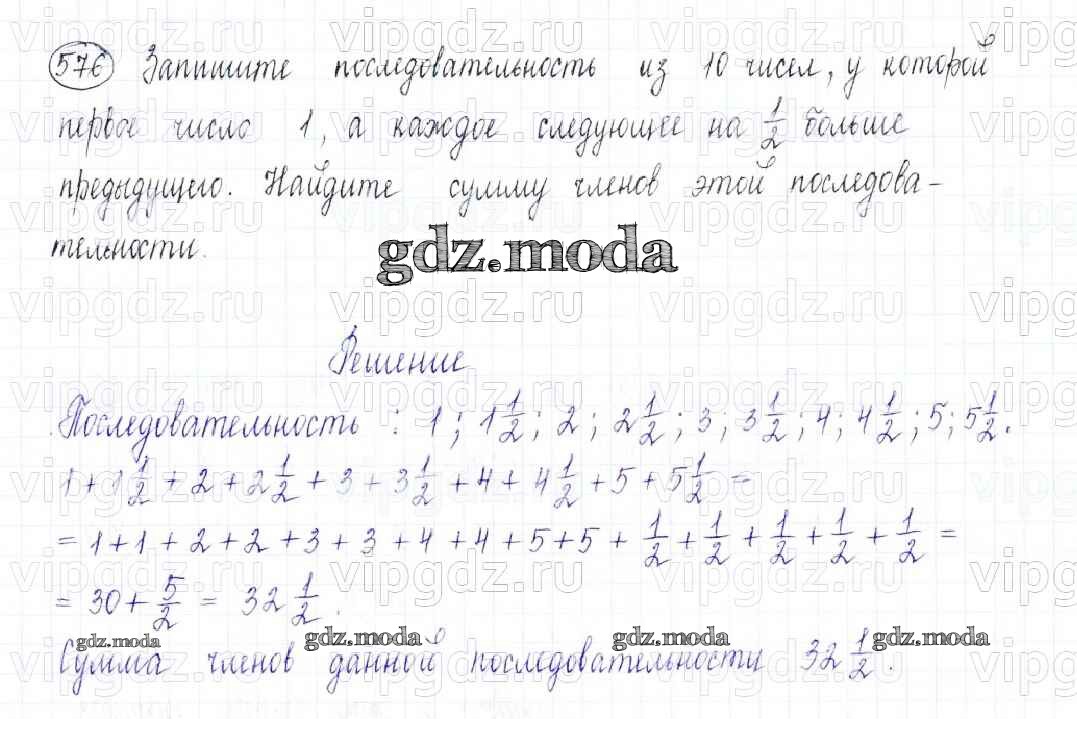 576 Запишите последовательность из 10 чисел, у которой
первое число 1, а каждое следующее на 1/2 больше
предыдущего. Найдите сумму членов этой последова-
тельности.
gdz.moda
Решение
Последовательность : 1 ; 1 1/2 ; 2 ; 2 1/2 ; 3 ; 3 1/2 ; 4 ; 4 1/2 ; 5 ; 5 1/2 .
1 + 1 1/2 + 2 + 2 1/2 + 3 + 3 1/2 + 4 + 4 1/2 + 5 + 5 1/2 =
= 1 + 1 + 2 + 2 + 3 + 3 + 4 + 4 + 5 + 5 + 1/2 + 1/2 + 1/2 + 1/2 + 1/2 =
= 30 + 5/2 = 32 1/2 .
gdz.moda gdz.moda gdz.moda gdz.moda
Сумма членов данной последовательности 32 1/2 .